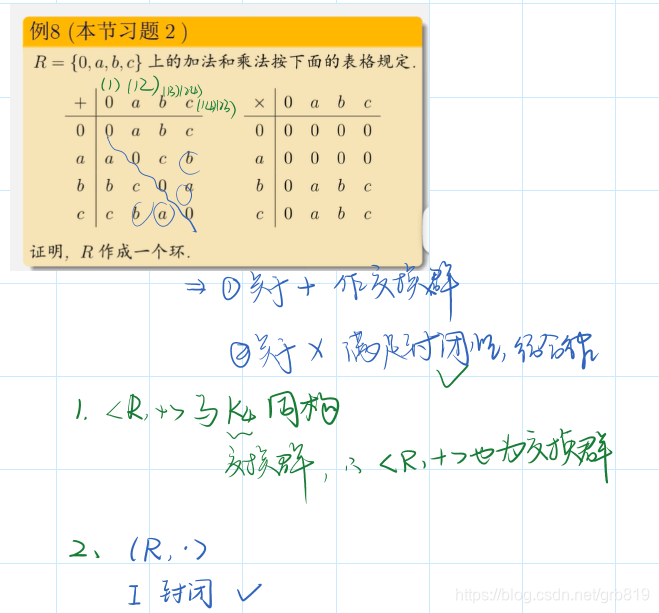 例8 (本节习题 2 )
R = {0, a, b, c} 上的加法和乘法按下面的表格规定.
(1) (12) (13)(24) (14)(23)
+ 0 a b c × 0 a b c
0 0 a b c 0 0 0 0 0
a a 0 c b a 0 0 0 0
b b c 0 a b 0 a b c
c c b a 0 c 0 a b c
证明, R 作成一个环.
⇒ ①关于 + 作交换群
②关于 × 满足封闭性, 结合律
✓
1. <R, +> 与 K4 同构
交换群, ∴ <R, +> 也为交换群
2、 (R, ·)
I 封闭 ✓
https://blog.csdn.net/grb819